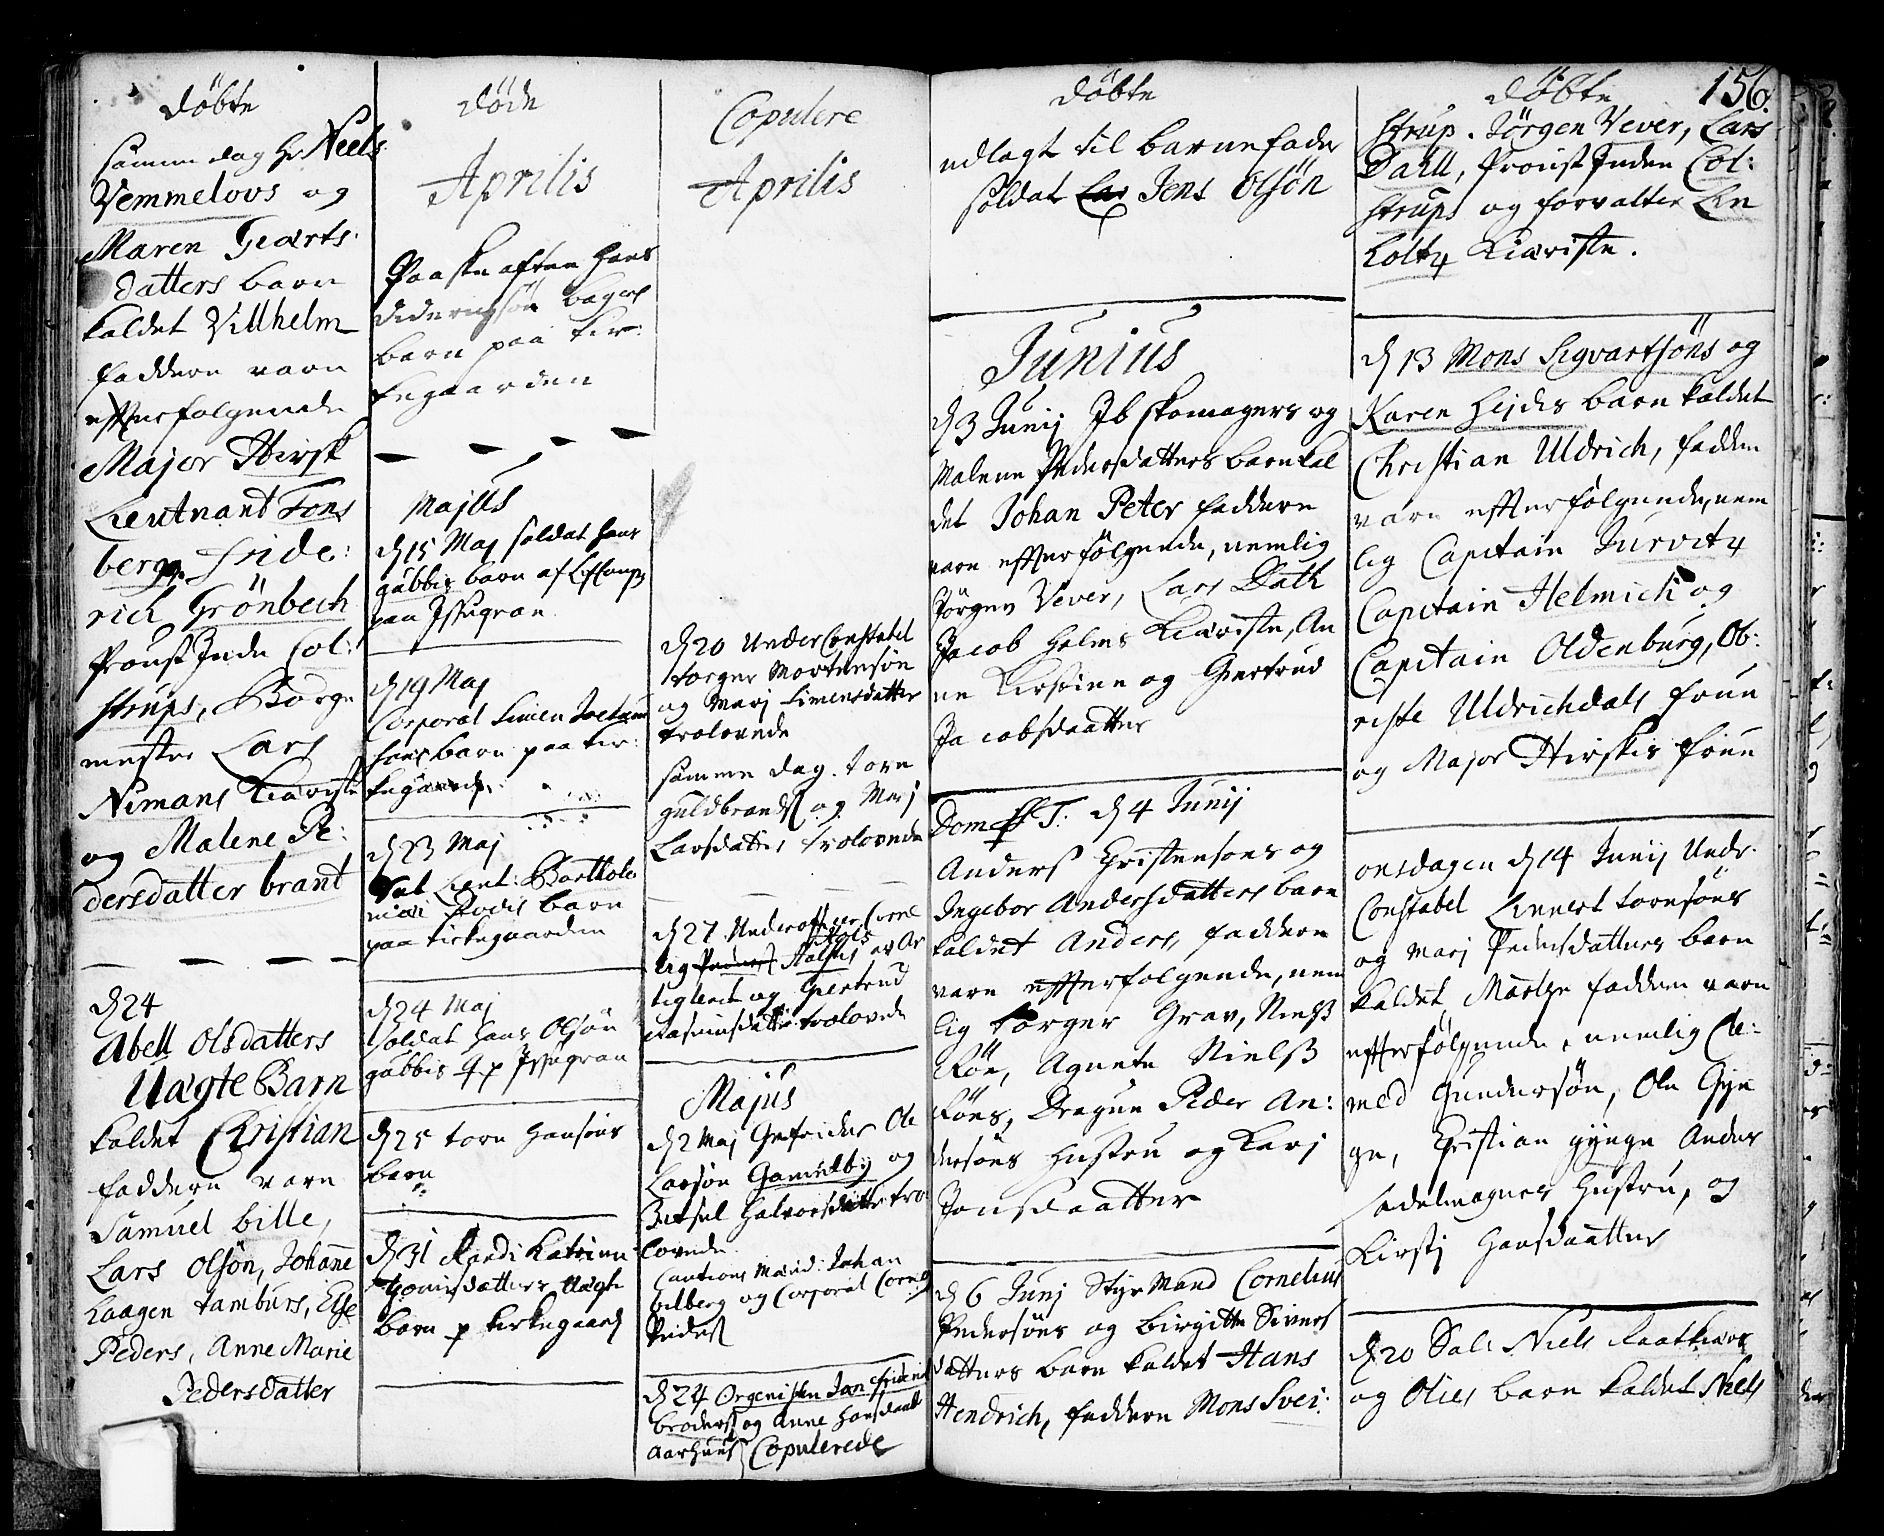 döbte
samme dag hr Neels
Vemmelovs og
Maren Geærts
datters barn
kaldet Villhelm
faddere vare
effterfølgende
Major Hirsk
Lieutnant Fons
berg, Fride:
rich Grönbech
Provst Jude Col:
strups, Borge
mester Lars
Nimans Kiæriste
og Malene Pe:
dersdatter brant
d 24
Abell Olsdatters
Uægte Barn
kaldet Christian
faddere vare
Samuel bille,
Lars Olsön, Johanne
Laagen tamburs, Else
Peders, Anne Marie
Pedersdatter
döde
Aprilis
Paaske aften hans
didericksøn bagers
barn paa kir:
kegaarden
Majus
d 15 Maj soldat hans
gubbis barn af
paa
d 19 Maj
Corporal Simen
hans barn paa kir:
kegaard
d 23 Maj
Lieut: Bartholo
mæi barn
paa kirkegaarden
d 24 Maj
soldat hans Olsön
gubbis
d 25 torn hansöns
barn
d 31 Randi Katrine
datters uægte
barn p kirkegaard
Copulere
Aprilis
d 20 Under Constabel
torger Mortensön
og Marj Simensdatter
trolovede
samme dag. tore
guldbrands og Marj
Larsdatter trolovede
d 27 Underofficer Corne
lig
og Giertrud
Rasmusdatter trolovede
Majus
d 2 Maj Ole
Larsön Gamelby og
Halvorsdatter tro
lovede
Cautions Mænd: Johan
bilberg og Corporal Cornelj
d 24 Orgenisten Jan Friderich
broders og Anne Hansdaat
Aarhuus Copulerede
döbte
udlagt til barnefader
soldat Lar Jens Olsön
Junius
d 3 Junij Ib skomagers og
Malene Pedersdatters barn kal
det Johan Peter faddere
vare effterfølgende, nemlig
Jörgen Vever, Lars Dahl
Jacob Holms Kiæriste, An
ne Kirstine og Giertrud
Jacobsdaatter
Dom T: d 4 Junij
Anders Christensöns og
Ingebor Andersdatters barn
kaldet Anders, faddere
vare effterfølgende, nem
lig torger Grav, Niels
Röe, Agnete Niels
Röes, Dragun Peder An:
dersöns Hustru og Karj
Jonsdaatter
d 6 Junj Styrmand Cornelius
Pedersöns og birgitte Sivers
datters barn kaldet Hans
Hendrich, faddere Mons Svei:
döbte
156.
strup. Jörgen Vever, Lars
Dahll, Provst Juden Col:
strups og forvalter Lin
holtz Kiæriste.
d 13 Mons Sigvartsöns og
Karen Hejdes barn kaldet
Christian Uldrich, faddere
vare effterfølgende, nem
lig Capitain Jurvitz
Capitain Helmich og
Capitain Oldenburg, Ob:
riste Uldrichdals frue
og Major Hirskis frue
onsdagen d 14 Junij Under
Constabel Linnert toresöns
og Marj Pedersdatters barn
kaldet Marthe faddere vare
effterfølgende, nemlig Cle:
med Gundersön, Ole Gyn
ge, Christian gynge Anders
Sadelmagers Hustru, og
Kirstj Hansdaatter
d 20 Sal: Niels
og Olies barn kaldet Niels